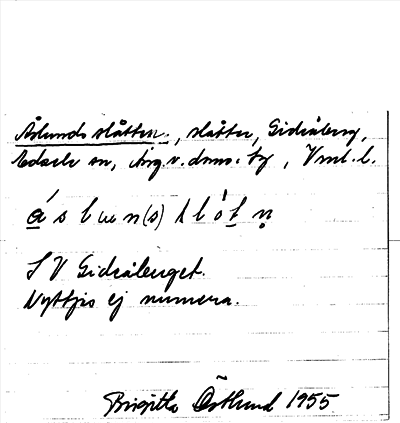 Åslundsslåtten, slåtter, Gideåberg,
Edsele sn, Ång. v. doms. tg, Vnl. l.
á s l uu n (s) s l ó t n
S V Gideåberget.
Nyttjas ej numera.
Birgitta Östlund 1955